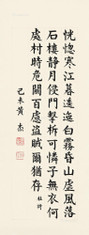 恍惚寒江暮逶迤白霧昏山虛風落
石樓靜月侵門擊柝可憐子無衣何
處村時危關百慮盜賊爾猶存 杜詩
己未黃杰